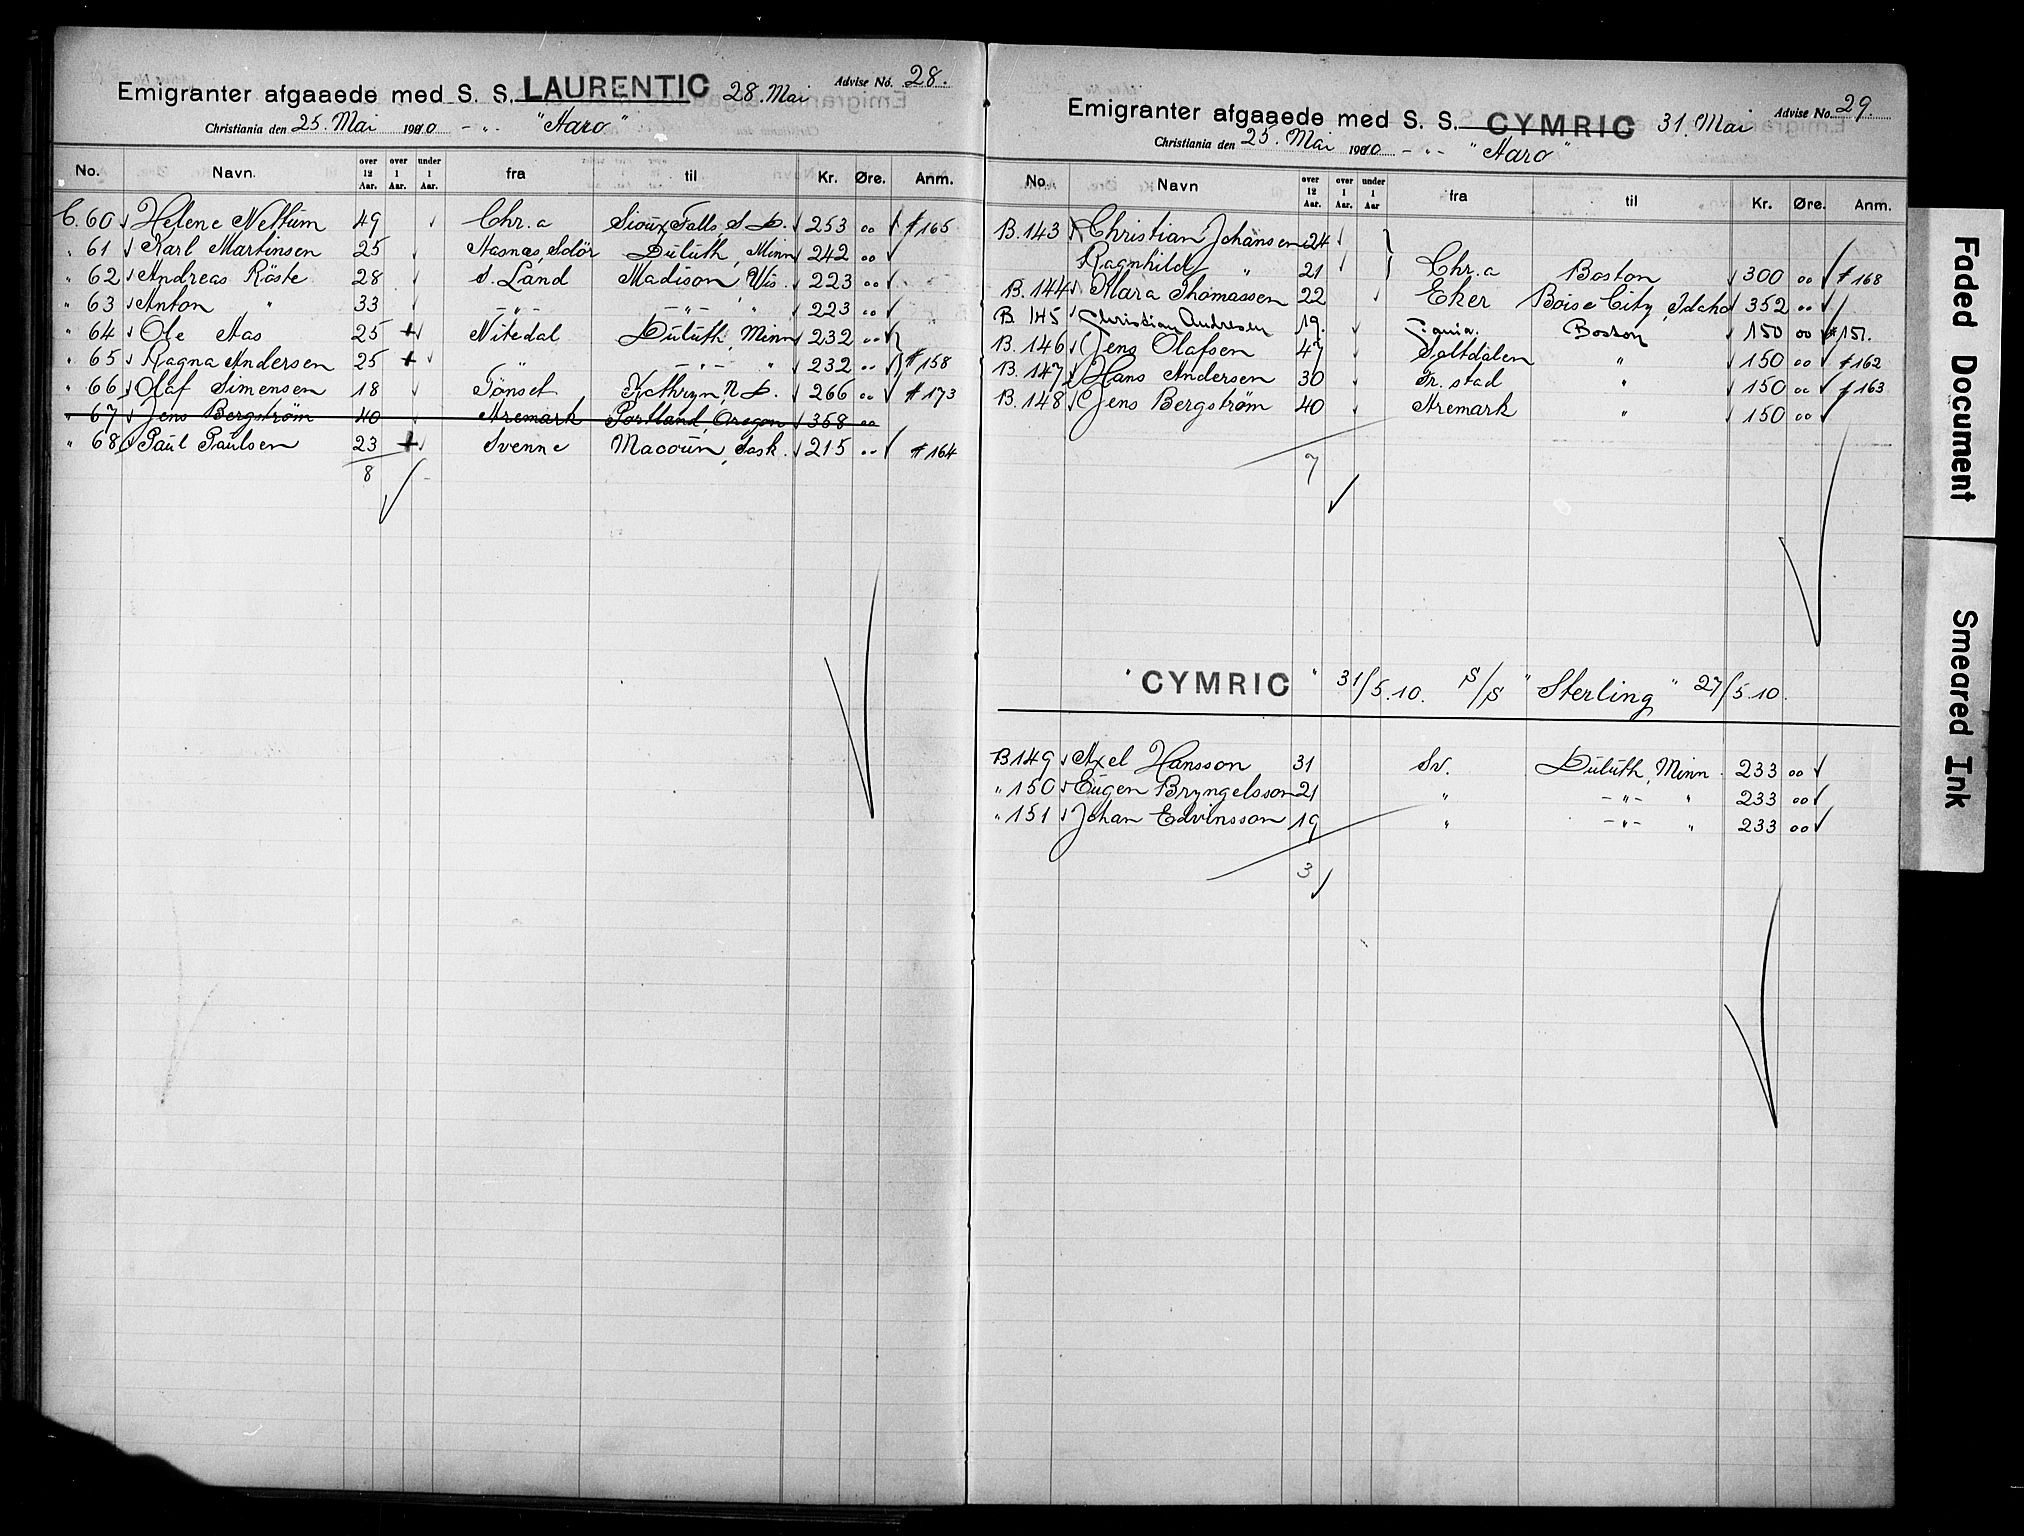 Emigranter afgaaede med S. S. LAURENTIC 28. Mai Advise No. 28.
Christiania den 25. Mai 1910 - „ - "Aaro"
No. Navn. over 12 Aar. over 1 Aar. under 1 Aar. fra til Kr. Øre. Anm.
C. 60 Helene Nettum 49 Chr.a Sioux Falls, S. D. 253 00 # 165
" 61 Karl Martinsen 25 Aasnes, Solör Duluth, Minn 242 00
" 62 Andreas Röste 28 S. Land Madison, Wis. 223 00
" 63 Anton " 33 - " - - " - " 223 00
" 64 Ole Aas 25 + Nitedal Duluth, Minn 232 00
" 65 Ragna Andersen 25 + " - " - " 232 00 # 158
" 66 Olaf Simensen 18 Tönset Kathryn, N. D. 266 00 # 173
" 67 Jens Bergström 40 Aremark Portland, Oregon 358 00
" 68 Paul Paulsen 23 + Svenne Macoun, Sask. 215 00 # 164
8
Emigranter afgaaede med S. S. CYMRIC 31. Mai Advise No. 29.
Christiania den 25. Mai 1910 - „ - "Aaro"
No. Navn over 12 Aar. over 1 Aar. under 1 Aar fra til Kr. Øre. Anm.
B. 143 Christian Johansen 24
Ragnhild " 21 Chr.a Boston 300 00 # 168
B. 144 Mara Thomassen 22 Eker Boise City, Idaho 352 00
B 145 Christian Andresen 19. Boston 150 00 # 151.
B. 146 Jens Olafsen 47 Saltdalen " 150 00 # 162
B. 147 Hans Andersen 30 Fr.stad " 150 00 # 163
B. 148 Jens Bergström 40 Aremark " 150 00
7
" CYMRIC " 31/5.10. S/S "Sterling" 27/5.10.
B 149 Axel Hansson 31 Sv. Duluth, Minn. 233 00
" 150 Eugen Bryngelsson 21 " - " - " 233 00
" 151 Johan Edvinsson 19 " - " - " 233 00
3
Faded Document
Smeared Ink